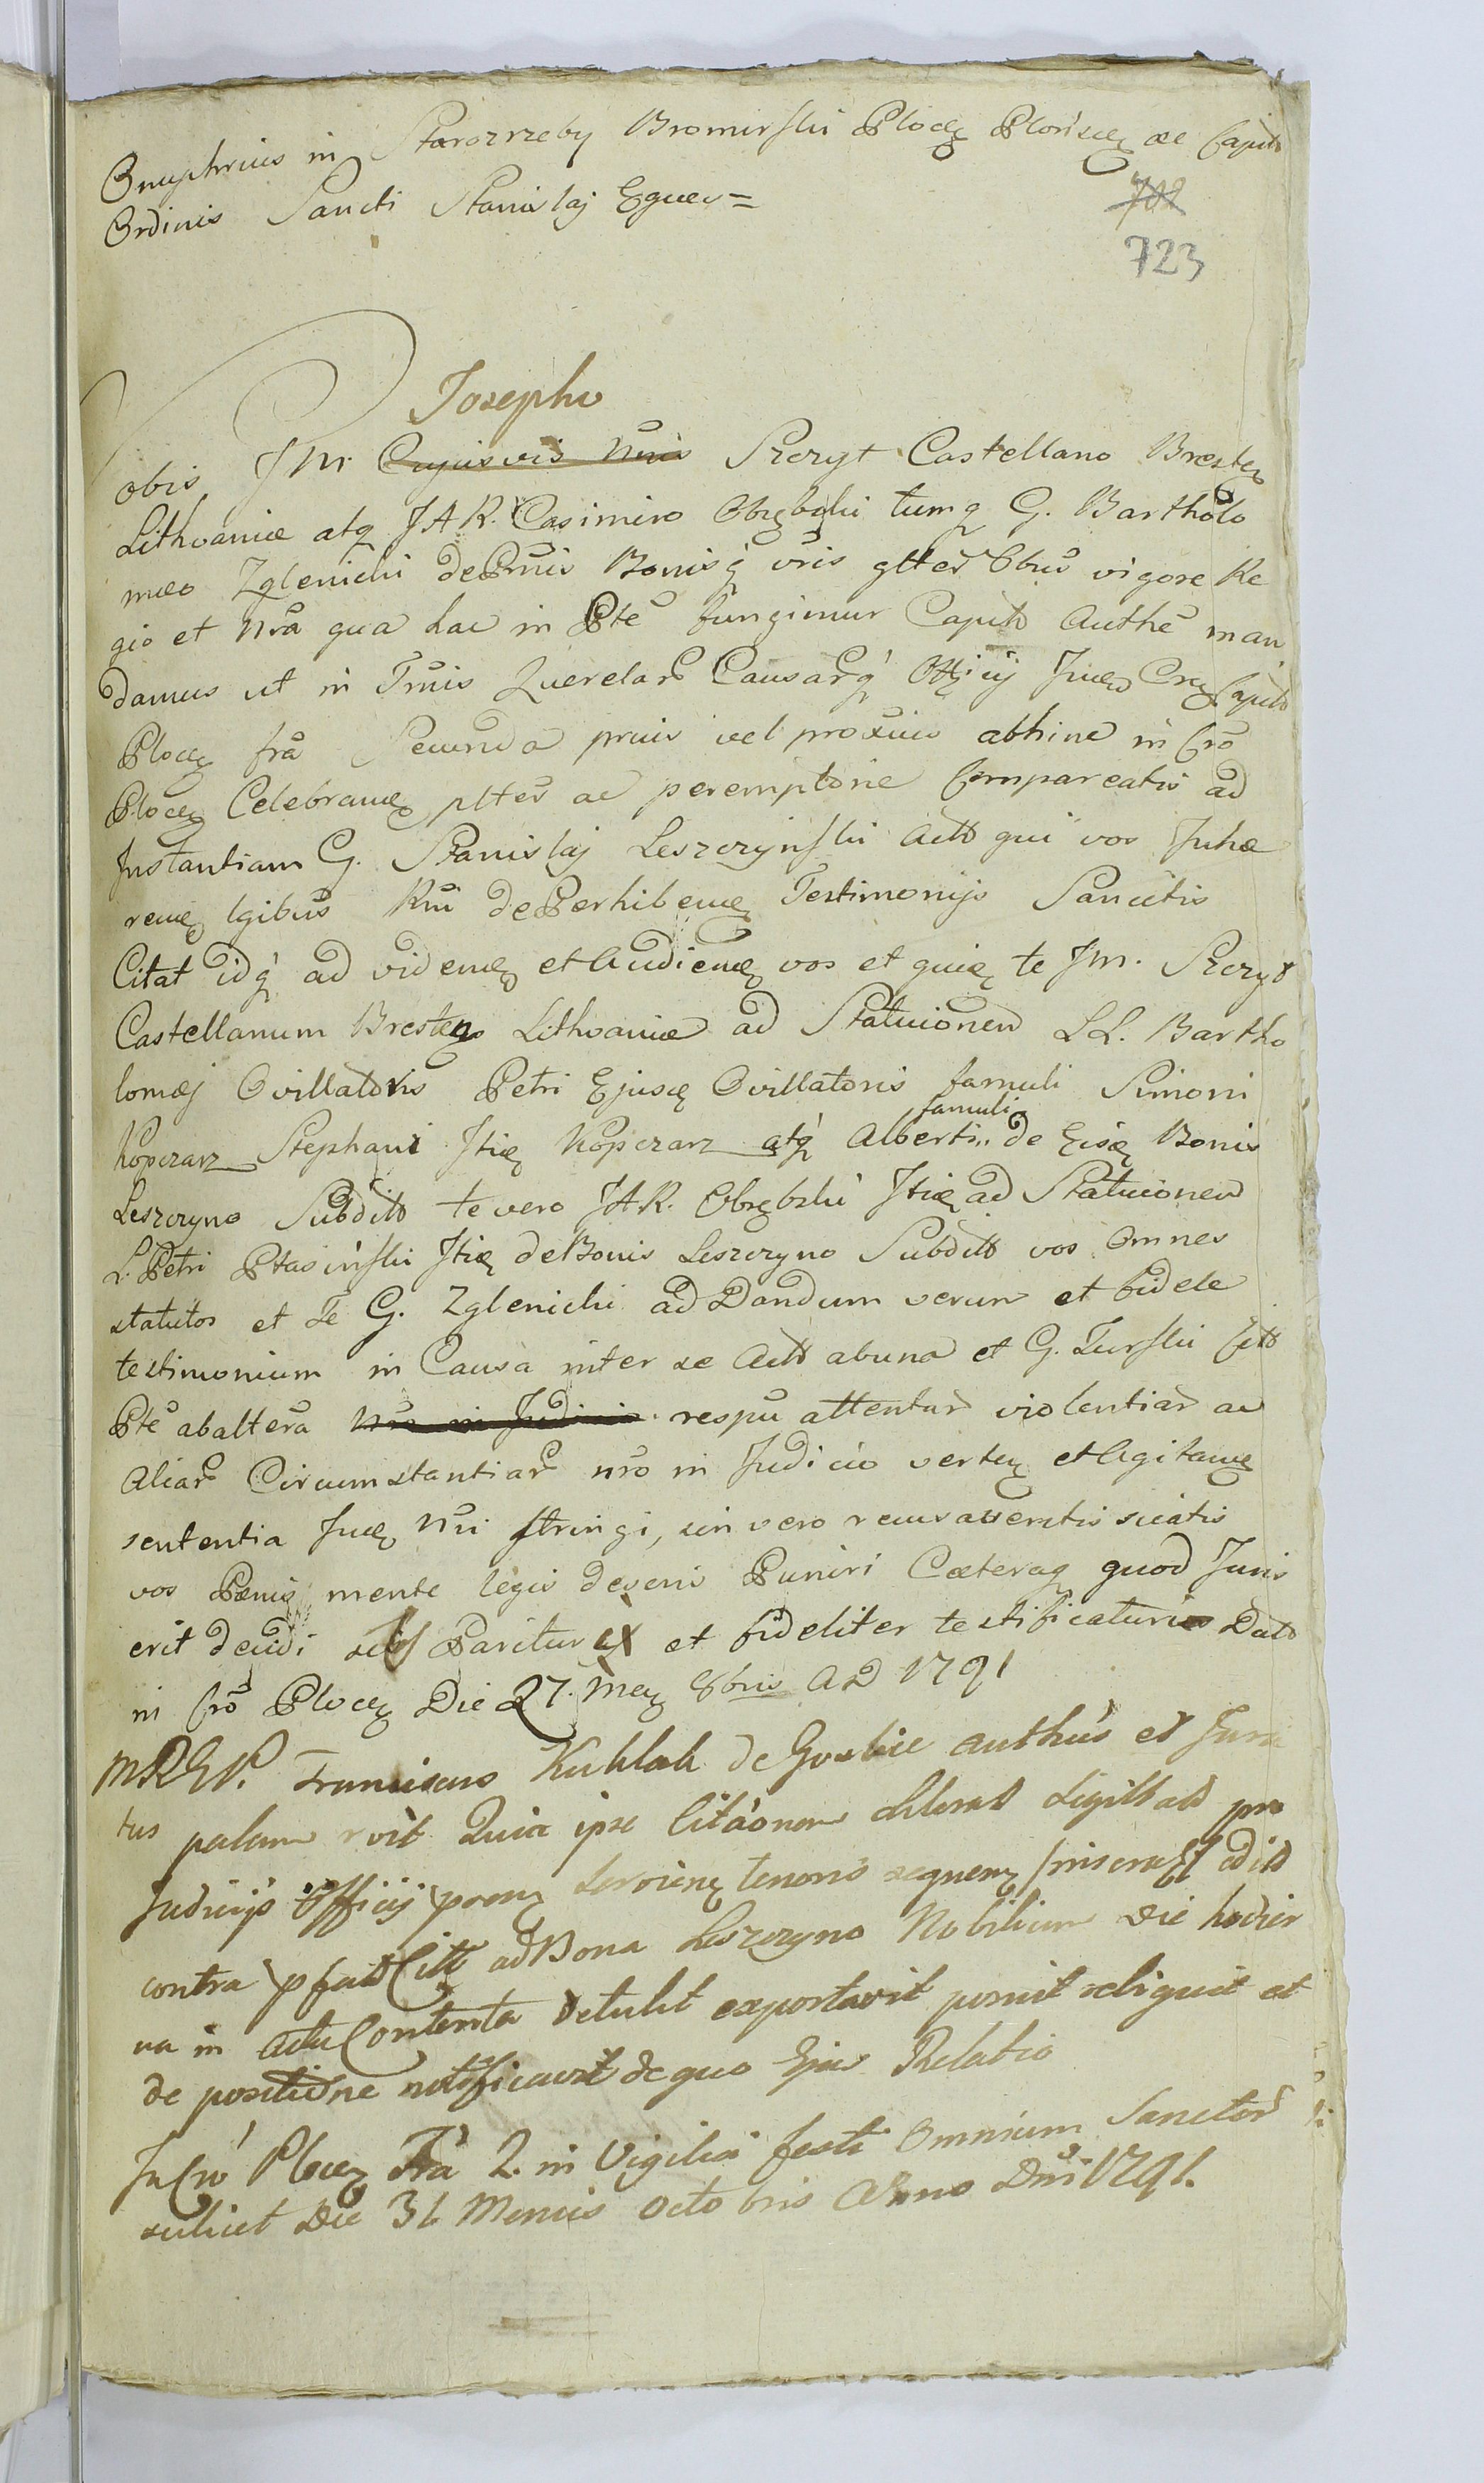 Onuphrius in Starozrzeby Bromirski Plocę Plońscę ae Capits
Ordinis Sancti Stanislaj Eques=
702
723
Josepho
Vobis JM. Cujusvis nris Szczyt Castellano Brestę
Lithvaniæ atq JAR. Casimiro Obrębski tumq G. Bartholo
mæo Zglenicki de Prnis Bonisq vris glter Obus vigore Re
gio et nra qua hac in Pte fungimur Capits Authe man
damus ut in Trnis Querelar Causarq Offcij Jucę Crę Capits
Plocę fra Secunda prnis vel proximo abhinc in Cro
Plocę Celebranę plter ac peremptorie Compareatis ad
Instantiam G. Stanislaj Leszczynski Acts qui vos Inhæ
renę lgibus Rni de Perhibenę Testimonijs Sancitis
Citat idq ad videnę et Audienę vos et quię te JM. Szczyt
Castellanum Bresteno Lithvaniæ ad Statuionem LL. Bartho
lomæj Ovillatoris Petri Ejusę Ovillatoris famuli Simoni
Kopczarz Stephani Itię Kopczarz atq Alberti famuli de Eisę Bonis
Leszczyno Subdits te vero JAR. Obrębski Itię ad Statuionem
L. Petri Ptasinski Itię de Bonis Leszczyno Subdits vos Omnes
statutos et Te G. Zglenicki ad Dandum verum et fidele
testimonium in Causa inter se Acts ab una et G. Turski Citts
Pte ab altera nro in Judicio respu attentar violentiar ac
aliar Circumstantiar nro in Judicio vertę et Agitanę
sententia Jucę nri stringi, sin vero recusaveritis sicatis
vos Pænis mente legis deseris Puniri Cæteraq quod Juris
erit decidi sitis Parituri et fideliter testificaturi Dats
in Cro Plocę Die 27. Mens 8bris AD 1791
MRGP. Franciscus Kuklak de Goslice authus et Jura
tus palam rvit Quia ipse Citaonem litteral sigillats pro
Judicijs Officij porenę servienę tenoris sequenę insera edits
contra pfats Citts ad Bona Leszczyno Nobilium die hodier
na in actu Contenta detulit exportavit posuit reliquit et
de positione notificavit de quo Ejus Relatio
In Cro Plocę Fra 2. in Vigilia festi Omnium Sanctor
scilicet Die 31 Mensis Octobris Anno Dni 1791.